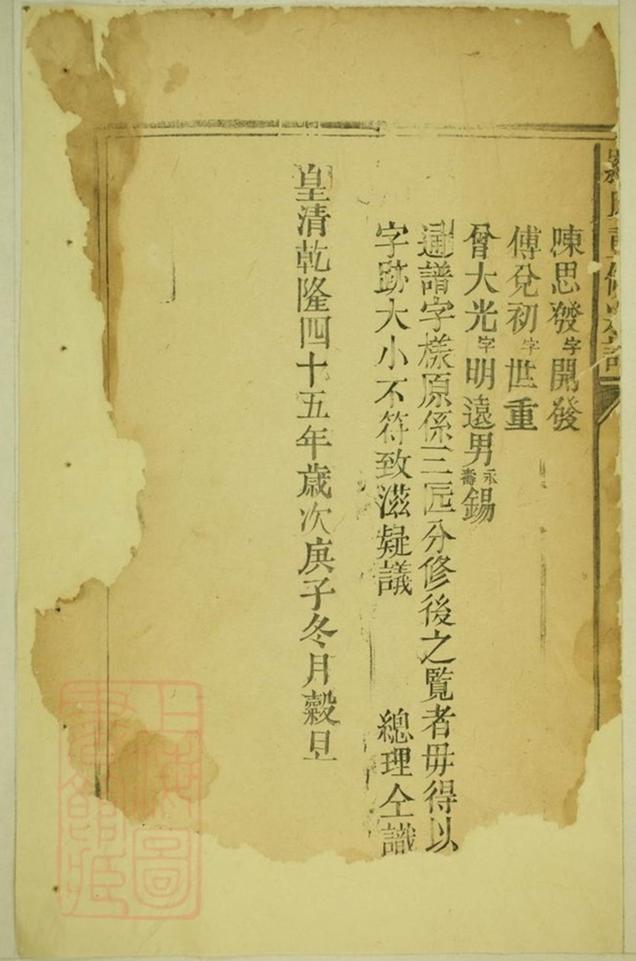 陳思發字開發
傅兌初字世重
曾大光字明遠男永壽錫
通譜字樣原係三匠分修後之覽者毋得以
字跡大小不符致滋疑議　總理仝識
皇清乾隆四十五年歲次庚子冬月穀旦
上海圖
書館藏